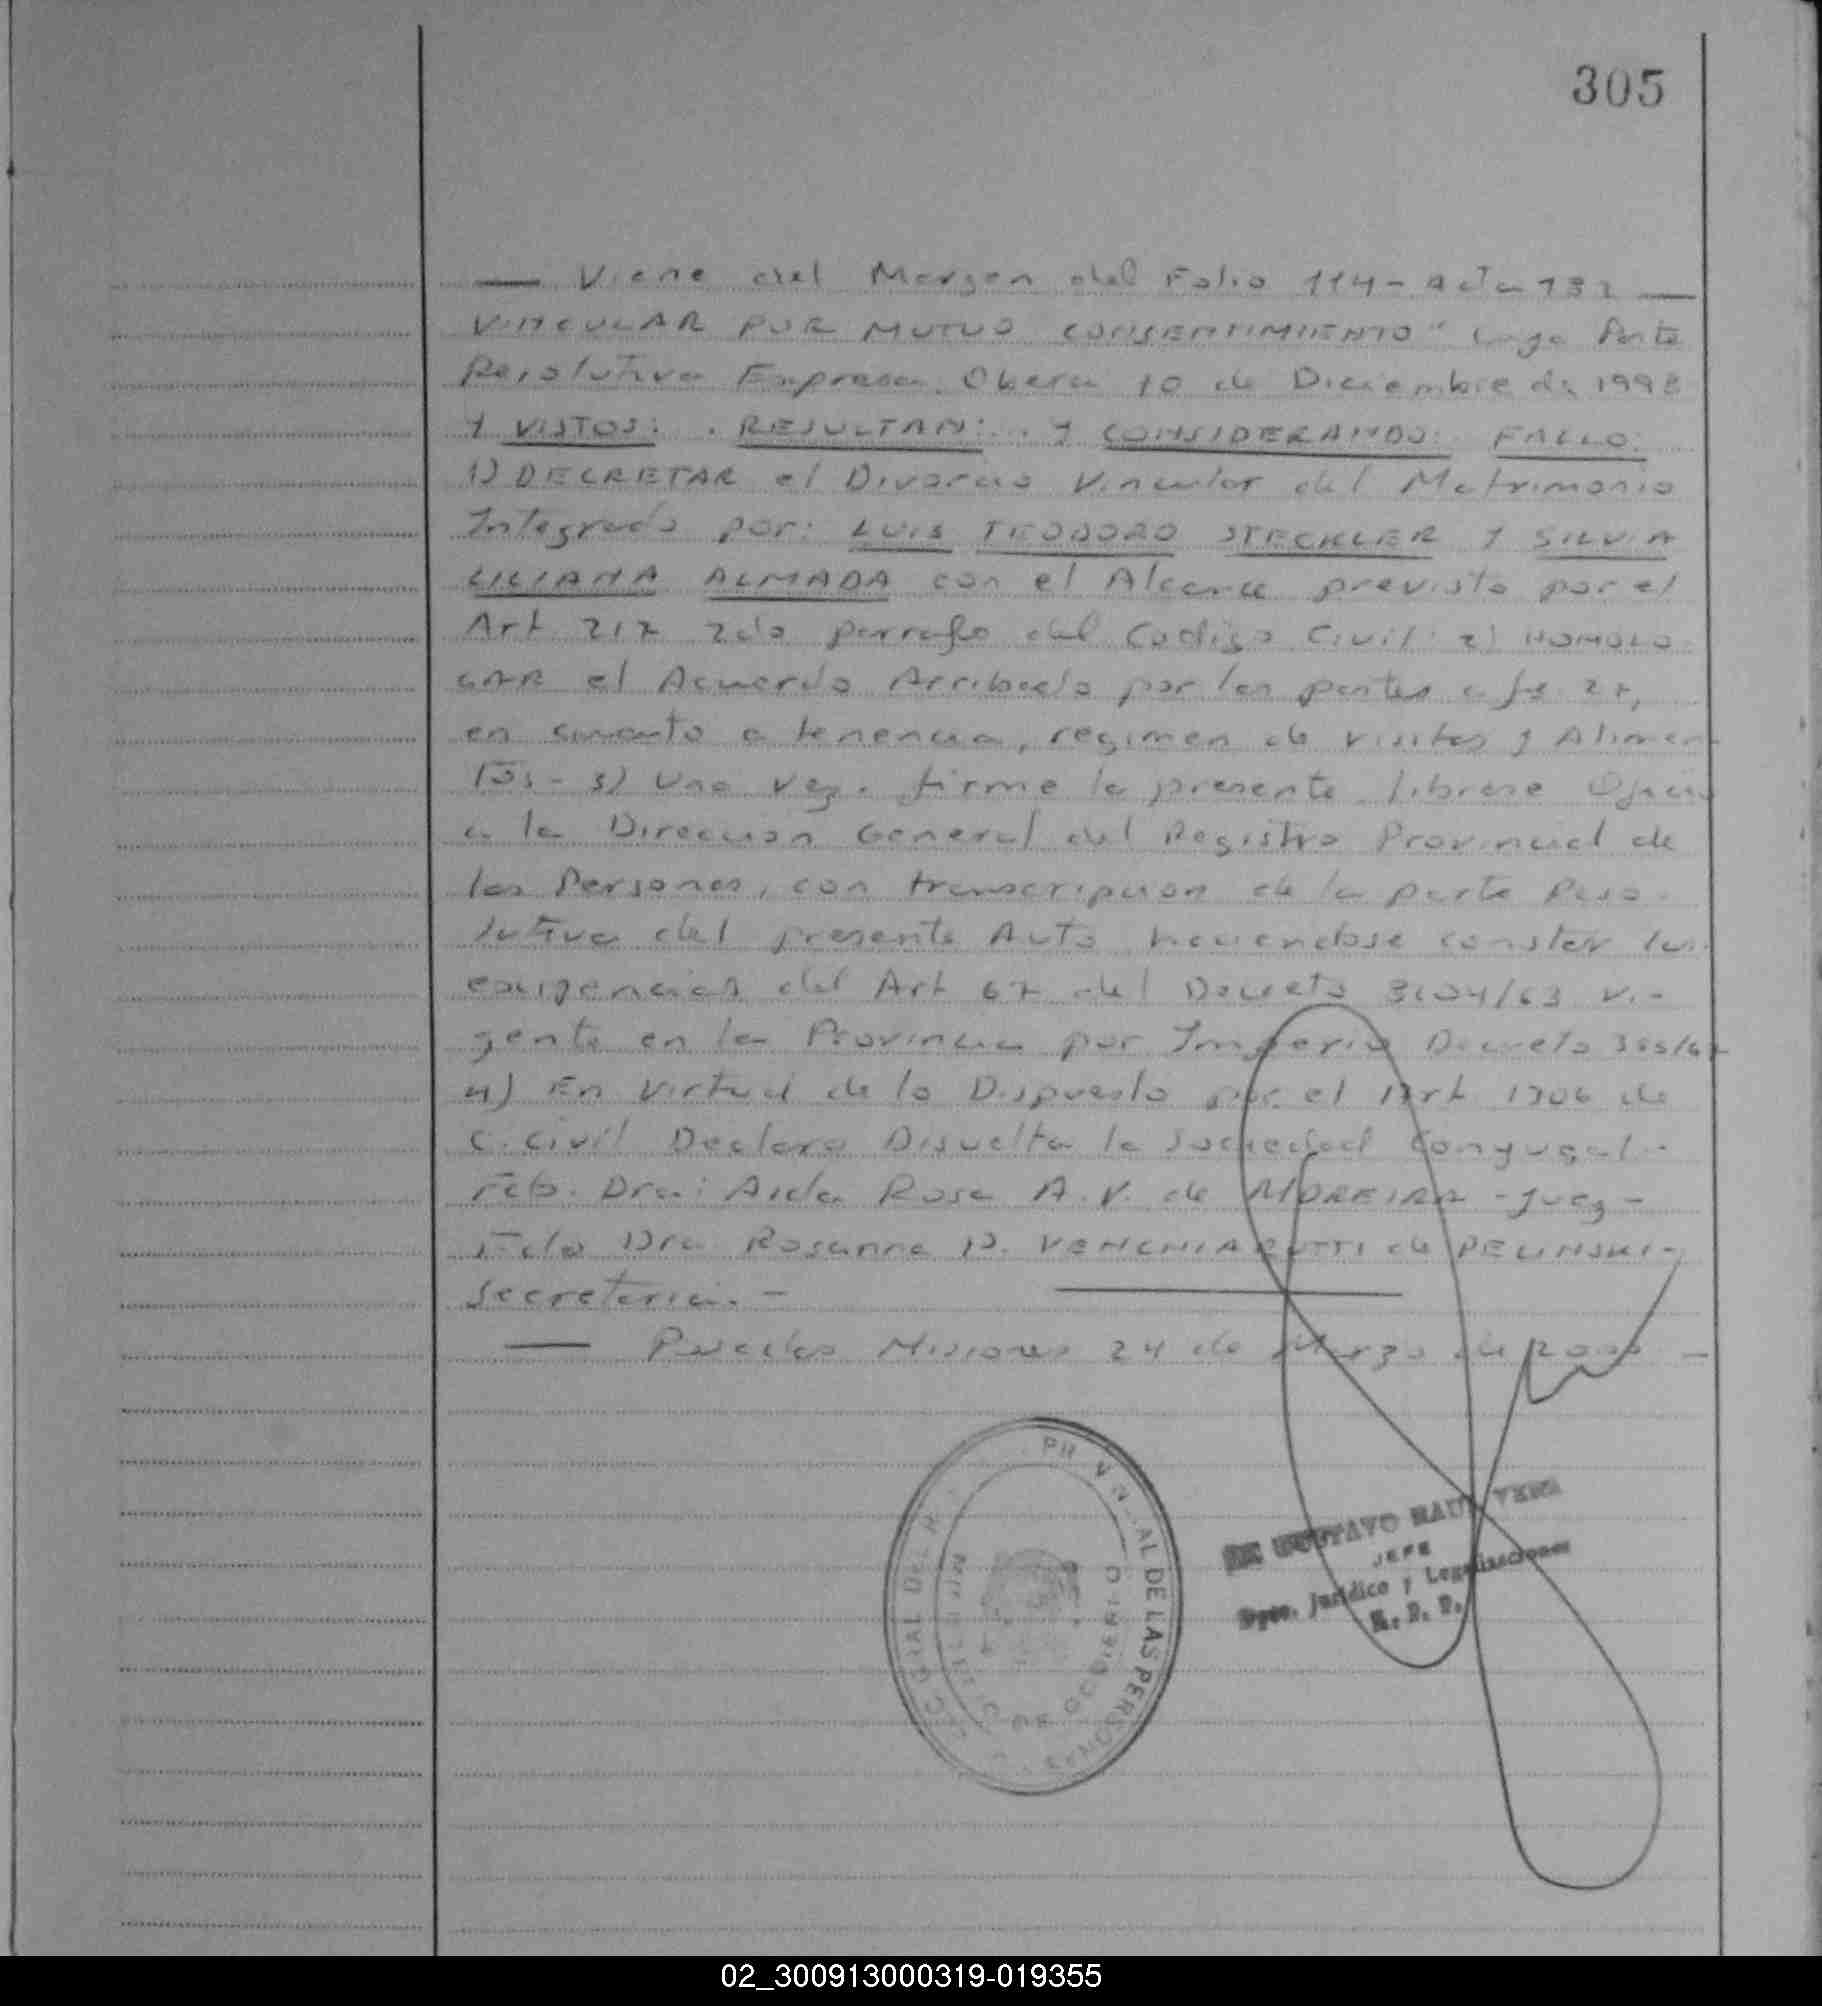 305
— Viene del Margen del Folio 114 - Acta 132 —
VINCULAR POR MUTUO CONSENTIMIENTO" cuya Parte
Resolutiva Expresa. Obera 10 de Diciembre de 1998
Y VISTOS: . RESULTAN: . Y CONSIDERANDO: FALLO:
1) DECRETAR el Divorcio Vincular del Matrimonio
Integrado por: LUIS TEODORO STECKLER Y SILVIA
LILIANA ALMADA con el Alcance previsto por el
Art 217 2do parrafo del Codigo Civil. 2) HOMOLO
GAR el Acuerdo Arribado por las partes a fs. 27,
en cuanto a tenencia, regimen de visitas y Alimen
tos - 3) Una vez. firme la presente librese Oficio
a la Direccion General del Registro Provincial de
las Personas, con transcripcion de la parte Reso-
lutiva del presente Auto haciendose constar las
exigencias del Art 67 del Decreto 8204/63 Vi-
gente en la Provincia por Imperio Decreto
4) En Virtud de lo Dispuesto por el Art 1306 de
C. Civil Declara Disuelta la Sociedad Conyugal -
Fdo. Dra: Aida Rosa A. V. de MOREIRA - Juez -
Fdo Dra Rosanna P. VENCHIARUTTI de PELINSKI -
Secretaria. -
— Posadas Misiones 24 de Marzo de 2000 —
DEL PROVINCIAL DE LAS PERSONAS
DE GOBIERNO
GUSTAVO RAUL VERA
JEFE
Dpto. Jurídico y Legalizaciones
R. P. P.
02_300913000319-019355